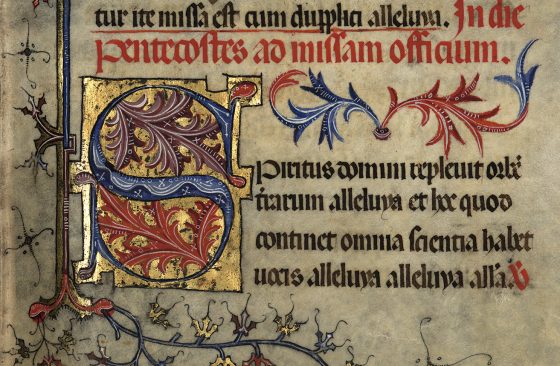 tur ite missa est cum dupplici alleluya. In die
pentecostes ad missam officium.
Spiritus domini repleuit orbē
t̄rarum alleluya et hoc quod
continet omnia scientia habet
uocis alleluya alleluya all'a. V